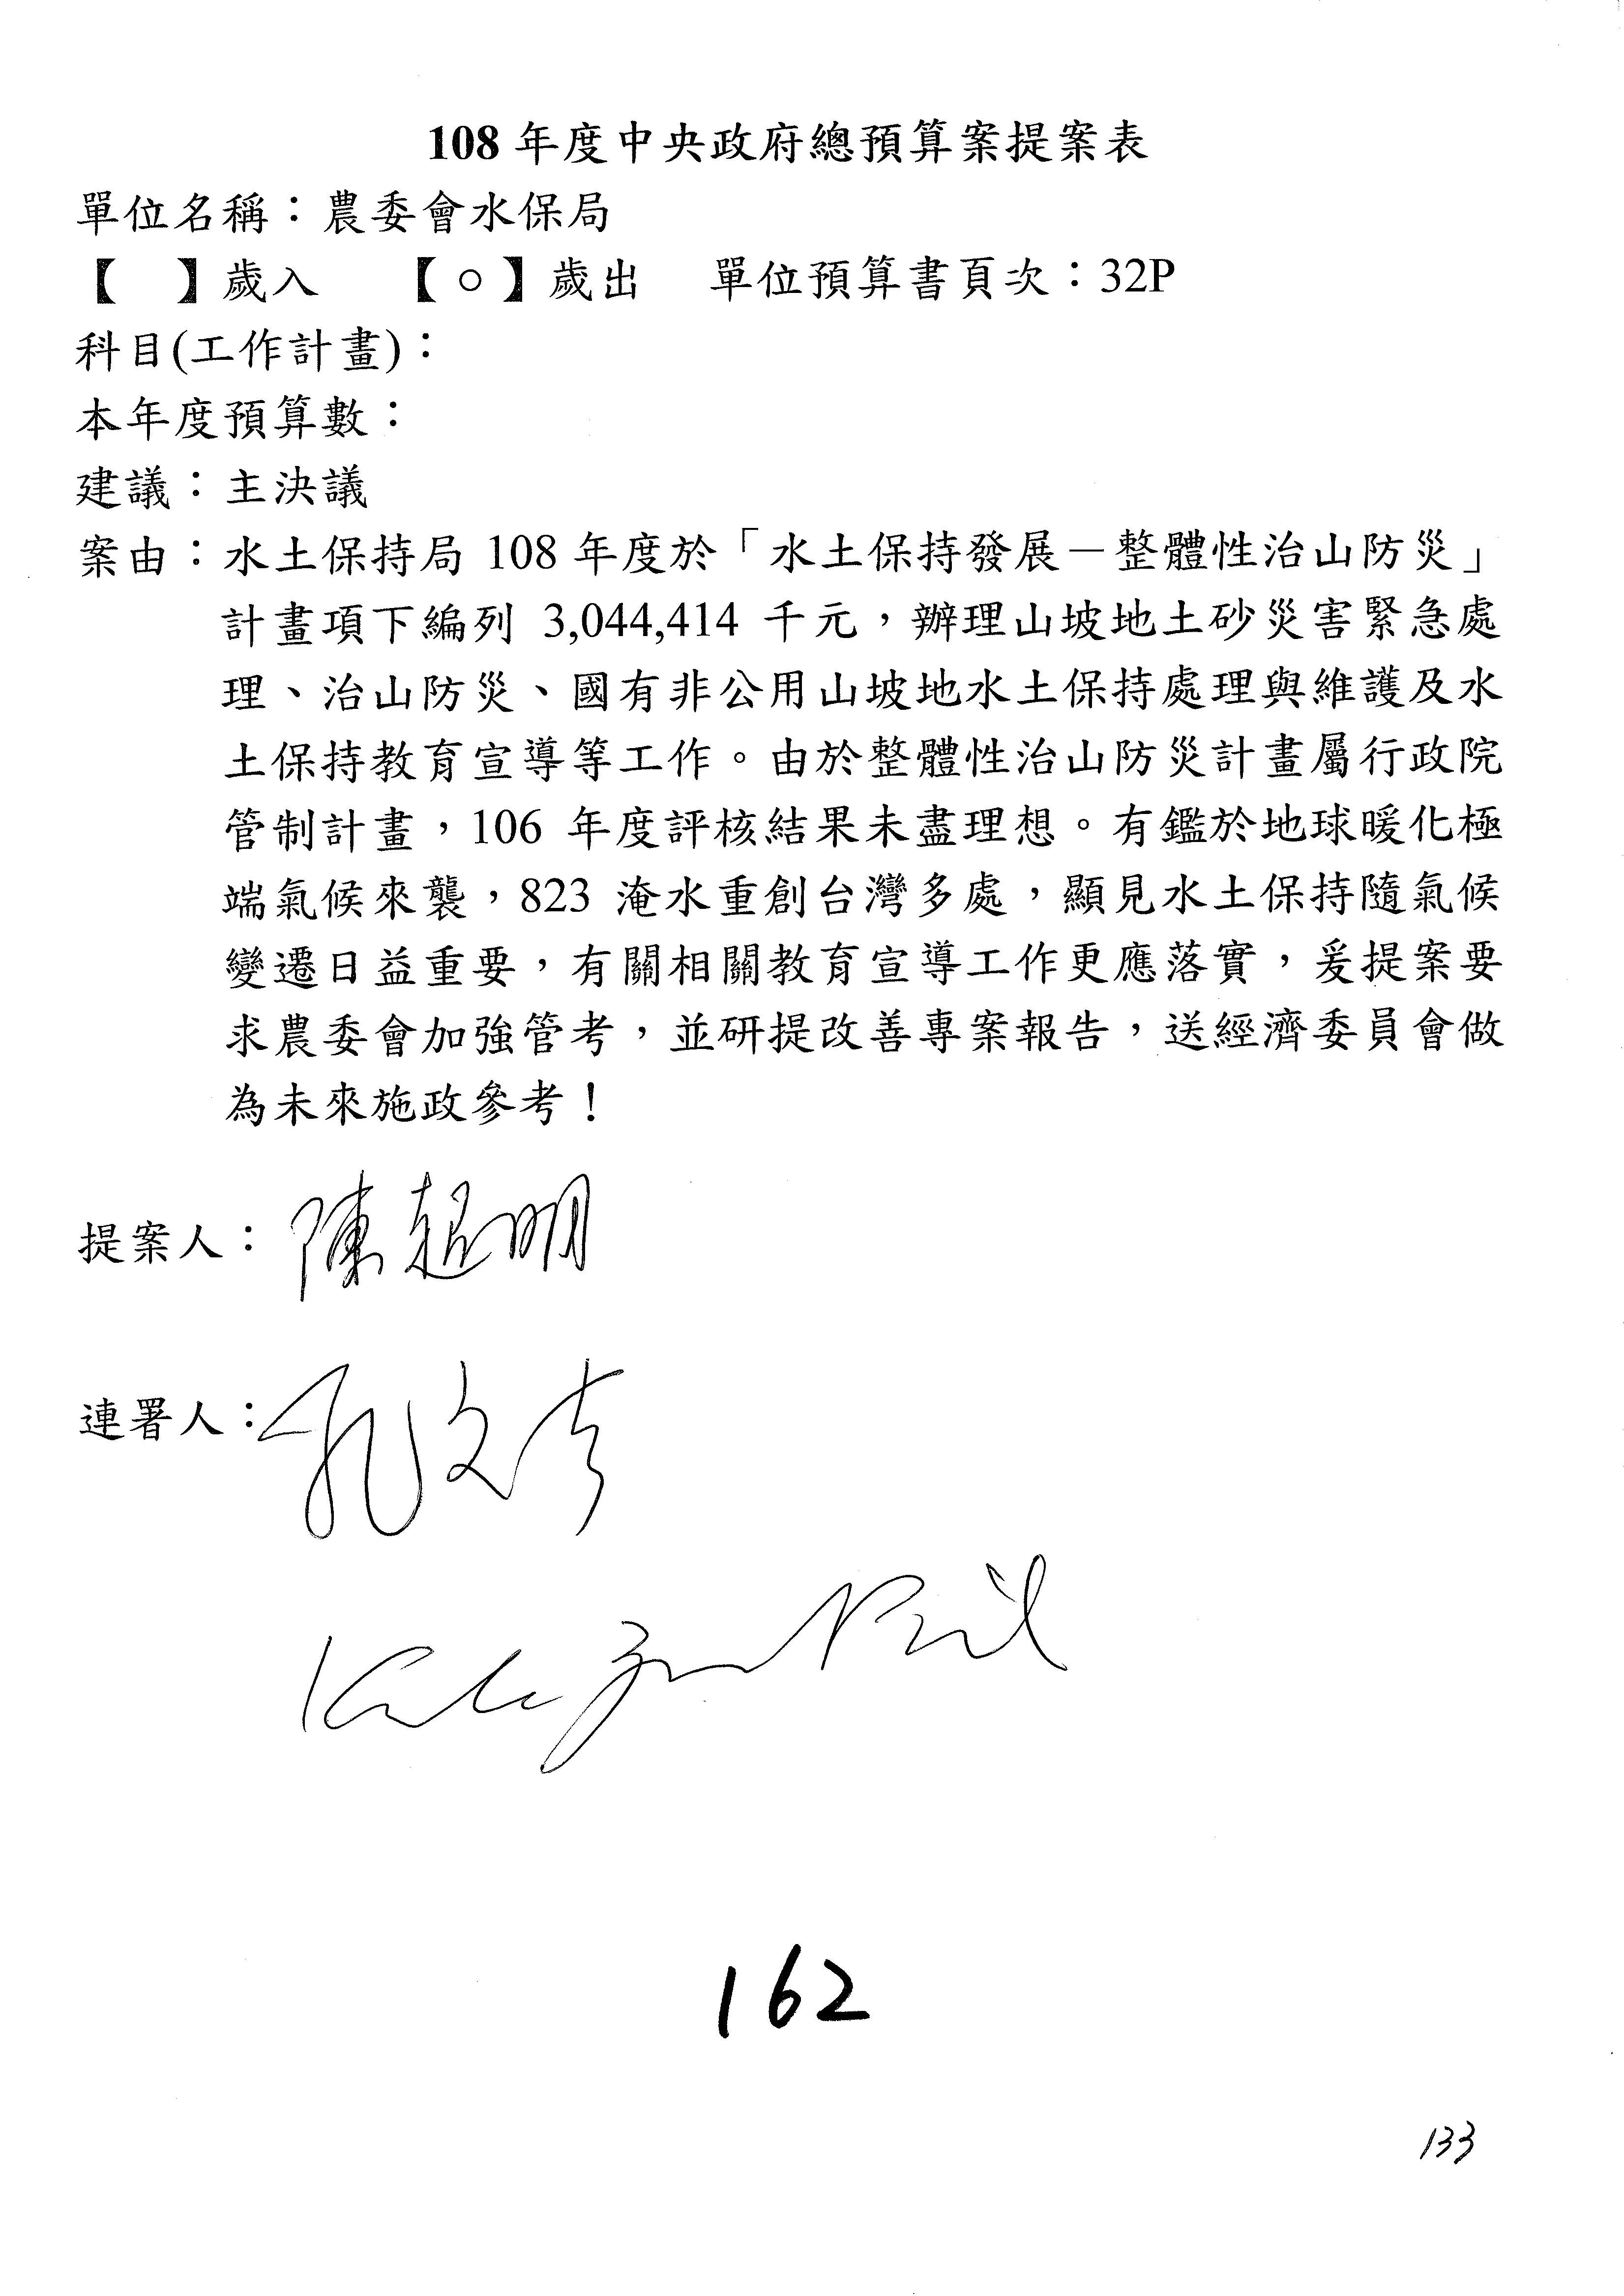 108 年度中央政府總預算案提案表
單位名稱：農委會水保局
【　】歲入　【○】歲出　單位預算書頁次：32P
科目(工作計畫)：
本年度預算數：
建議：主決議
案由：水土保持局 108 年度於「水土保持發展－整體性治山防災」
計畫項下編列 3,044,414 千元，辦理山坡地土砂災害緊急處
理、治山防災、國有非公用山坡地水土保持處理與維護及水
土保持教育宣導等工作。由於整體性治山防災計畫屬行政院
管制計畫，106 年度評核結果未盡理想。有鑑於地球暖化極
端氣候來襲，823 淹水重創台灣多處，顯見水土保持隨氣候
變遷日益重要，有關相關教育宣導工作更應落實，爰提案要
求農委會加強管考，並研提改善專案報告，送經濟委員會做
為未來施政參考！
提案人：陳超明
連署人：孔文吉
162
133